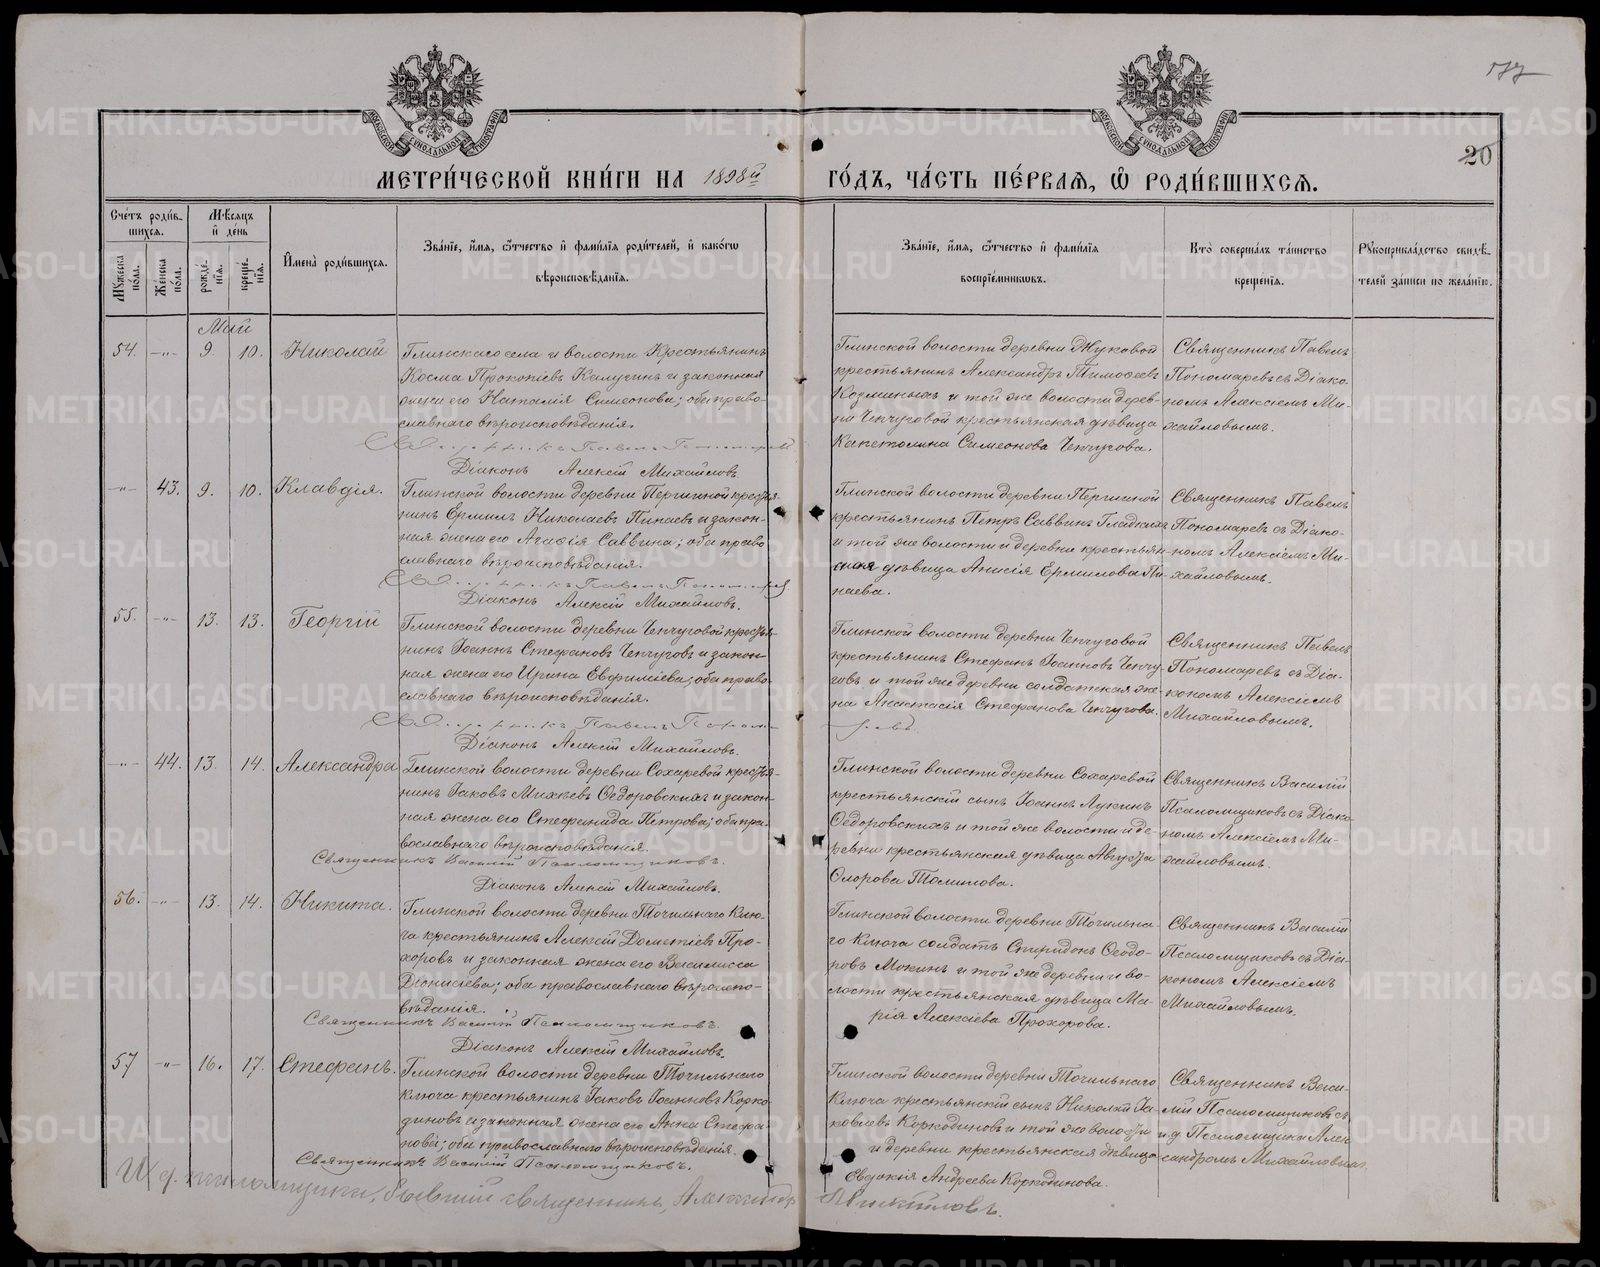 177
20
МЕТРИ́ЧЕСКОЙ КНИ́ГИ НА 1898й ГО́ДЪ, ЧА́СТЬ ПЕ́РВАѦ, Ѿ РОДИ́ВШИХСѦ.
Сче́тъ роди́вшихся.
Мꙋжеска по́ла.
Же́нска по́ла.
Мѣсяцъ и҆ де́нь
рожде́нїѧ.
креще́нїѧ.
И҆мена̀ роди́вшихсѧ.
Зва́нїе, и҆́мѧ, ѻ҆́тчество и҆ фами́лїѧ роди́телей, и҆ како́гѡ вѣроисповѣ́данїѧ.
Зва́нїе, и҆́мѧ, ѻ҆́тчество и҆ фами́лїѧ воспрїе́мникѡвъ.
Кто̀ соверша́лъ та́инство креще́нїѧ.
Рꙋкоприкла́дство свидѣ́телей за́писи по жела́нїю.
Май
54. -"- 9. 10. Николай
Глинскаго села и волости Крестьянинъ
Косма Прокопіевъ Калугинъ и законная
жена его Наталія Симеонова; оба право-
славнаго вѣроисповѣданія.
Діаконъ Алексій Михайловъ.
Глинской волости деревни Жуковой
крестьянинъ Александръ Тимофеевъ
Козминыхъ и той же волости дерев-
ни Ченчуговой крестьянская дѣвица
Капетолина Симеонова Ченчугова.
Священникъ Павелъ
Пономаревъ съ Діако-
номъ Алексіемъ Ми-
хайловымъ.
-"- 43. 9. 10. Клавдія.
Глинской волости деревни Першиной крестья-
нинъ Ермилъ Николаевъ Пинаевъ и закон-
ная жена его Агафія Саввина; оба право-
славнаго вѣроисповѣданія.
Діаконъ Алексій Михайловъ.
Глинской волости деревни Першиной
крестьянинъ Петръ Саввинъ Гладкихъ
и той же волости и деревни крестьян-
ская дѣвица Анисія Ермилова Пи-
наева.
Священникъ Павелъ
Пономаревъ съ Діако-
номъ Алексіемъ Ми-
хайловымъ.
55. -"- 13. 13. Георгій
Глинской волости деревни Ченчуговой крестья-
нинъ Іоаннъ Стефановъ Ченчуговъ и закон-
ная жена его Ирина Евфиміева; оба право-
славнаго вѣроисповѣданія.
Діаконъ Алексій Михайловъ.
Глинской волости деревни Ченчуговой
крестьянинъ Стефанъ Іоанновъ Ченчу-
говъ и той же деревни солдатская же-
на Анастасія Стефанова Ченчугова.
Священникъ Павелъ
Пономаревъ съ Діа-
кономъ Алексіемъ
Михайловымъ.
-"- 44. 13. 14. Александра
Глинской волости деревни Сохаревой крестья-
нинъ Іаковъ Михѣевъ Ѳедоровскихъ и закон-
ная жена его Стефанида Петрова; оба пра-
вославнаго вѣроисповѣданія.
Священникъ Василій Псаломщиковъ.
Діаконъ Алексій Михайловъ.
Глинской волости деревни Сохаревой
крестьянскій сынъ Іоаннъ Лукинъ
Ѳедоровскихъ и той же волости и де-
ревни крестьянская дѣвица Августа
Флорова Томилова.
Священникъ Василій
Псаломщиковъ съ Діако-
номъ Алексіемъ Ми-
хайловымъ.
56. -"- 13. 14. Никита.
Глинской волости деревни Точильнаго Клю-
ча крестьянинъ Алексій Дометіевъ Про-
хоровъ и законная жена его Василисса
Діонисіева; оба православнаго вѣроиспо-
вѣданія.
Священникъ Василій Псаломщиковъ.
Діаконъ Алексій Михайловъ.
Глинской волости деревни Точильна-
го Ключа солдатъ Спиридонъ Ѳеодо-
ровъ Мокинъ и той же деревни и во-
лости крестьянская дѣвица Ма-
рія Алексіева Прохорова.
Священникъ Василій
Псаломщиковъ съ Діа-
кономъ Алексіемъ
Михайловымъ.
57 -"- 16. 17. Стефанъ.
Глинской волости деревни Точильнаго
Ключа крестьянинъ Іаковъ Іоанновъ Корко-
диновъ и законная жена его Анна Стефа-
нова; оба православнаго вѣроисповѣданія.
Священникъ Василій Псаломщиковъ.
Глинской волости деревни Точильнаго
Ключа крестьянскій сынъ Николай Іа-
ковлевъ Коркодиновъ и той же волости
и деревни крестьянская дѣвица
Евдокія Андреева Коркодинова.
Священникъ Васи-
лій Псаломщиковъ съ
и.д. Псаломщика Алек-
сандромъ Михайловымъ.
И.д. псаломщика, бывший священникъ, Александръ Михайловъ.
METRIKI.GASO-URAL.RU